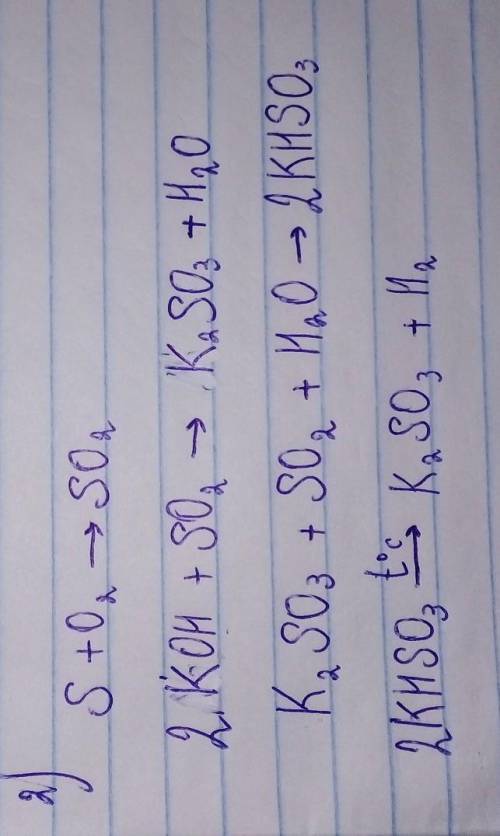 2)
S + O₂ → SO₂
2KOH + SO₂ → K₂SO₃ + H₂O
K₂SO₃ + SO₂ + H₂O → 2KHSO₃
2KHSO₃ t°c→ K₂SO₃ + H₂